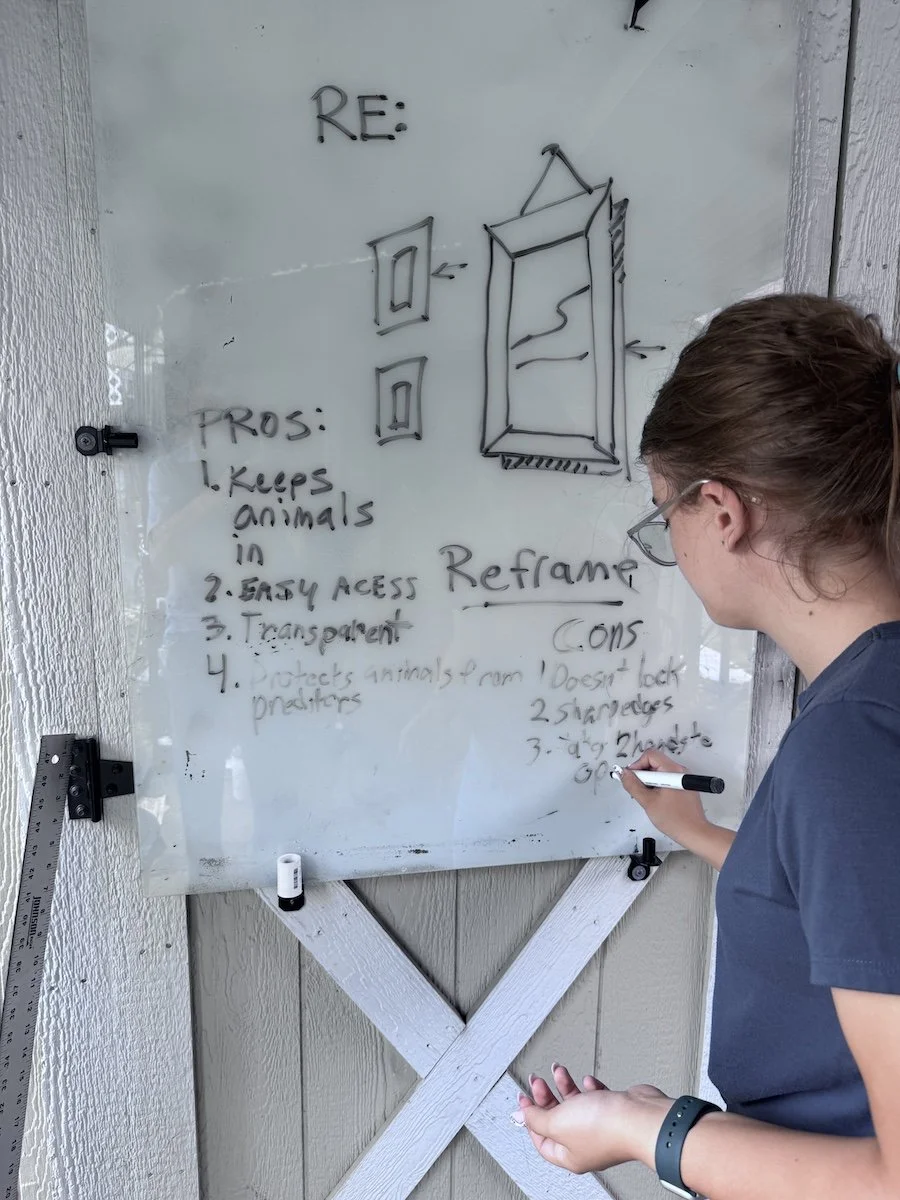 RE:
PROS:
1. Keeps
animals
in
2. EASY ACESS
3. Transparent
4. Protects animals from
preditors
Reframe
Cons
1 Doesn't lock
2 sharp edges
3. 2 hands to
JOHNSON